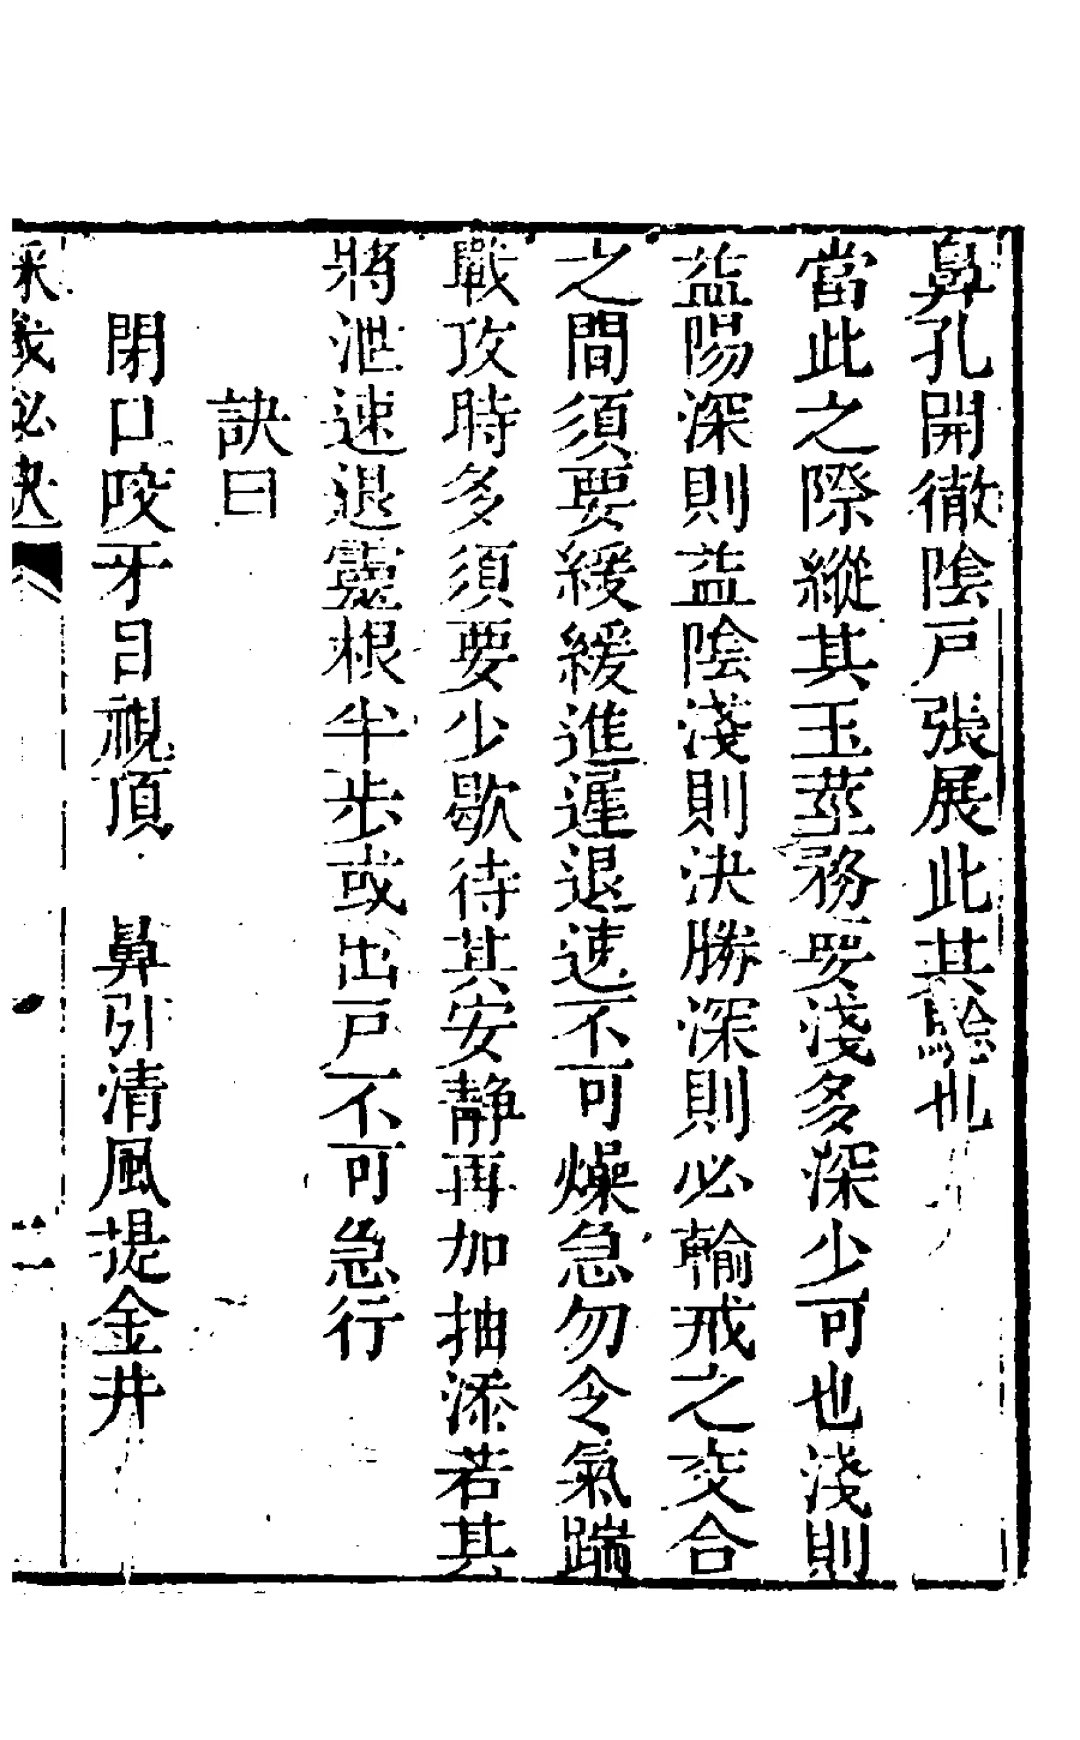 鼻孔開徹陰戸張展此其驗也
當此之際縱其玉莖務要淺多深少可也淺則
益陽深則益陰淺則決勝深則必輸戒之交合
之間須要緩緩進遲退速不可燥急勿令氣踹
戰攻時多須要少歇待其安靜再加抽添若其
將泄速退靈根半步或出戸不可急行
訣曰
閉口咬牙目視頂 鼻引清風提金井
採戰必訣